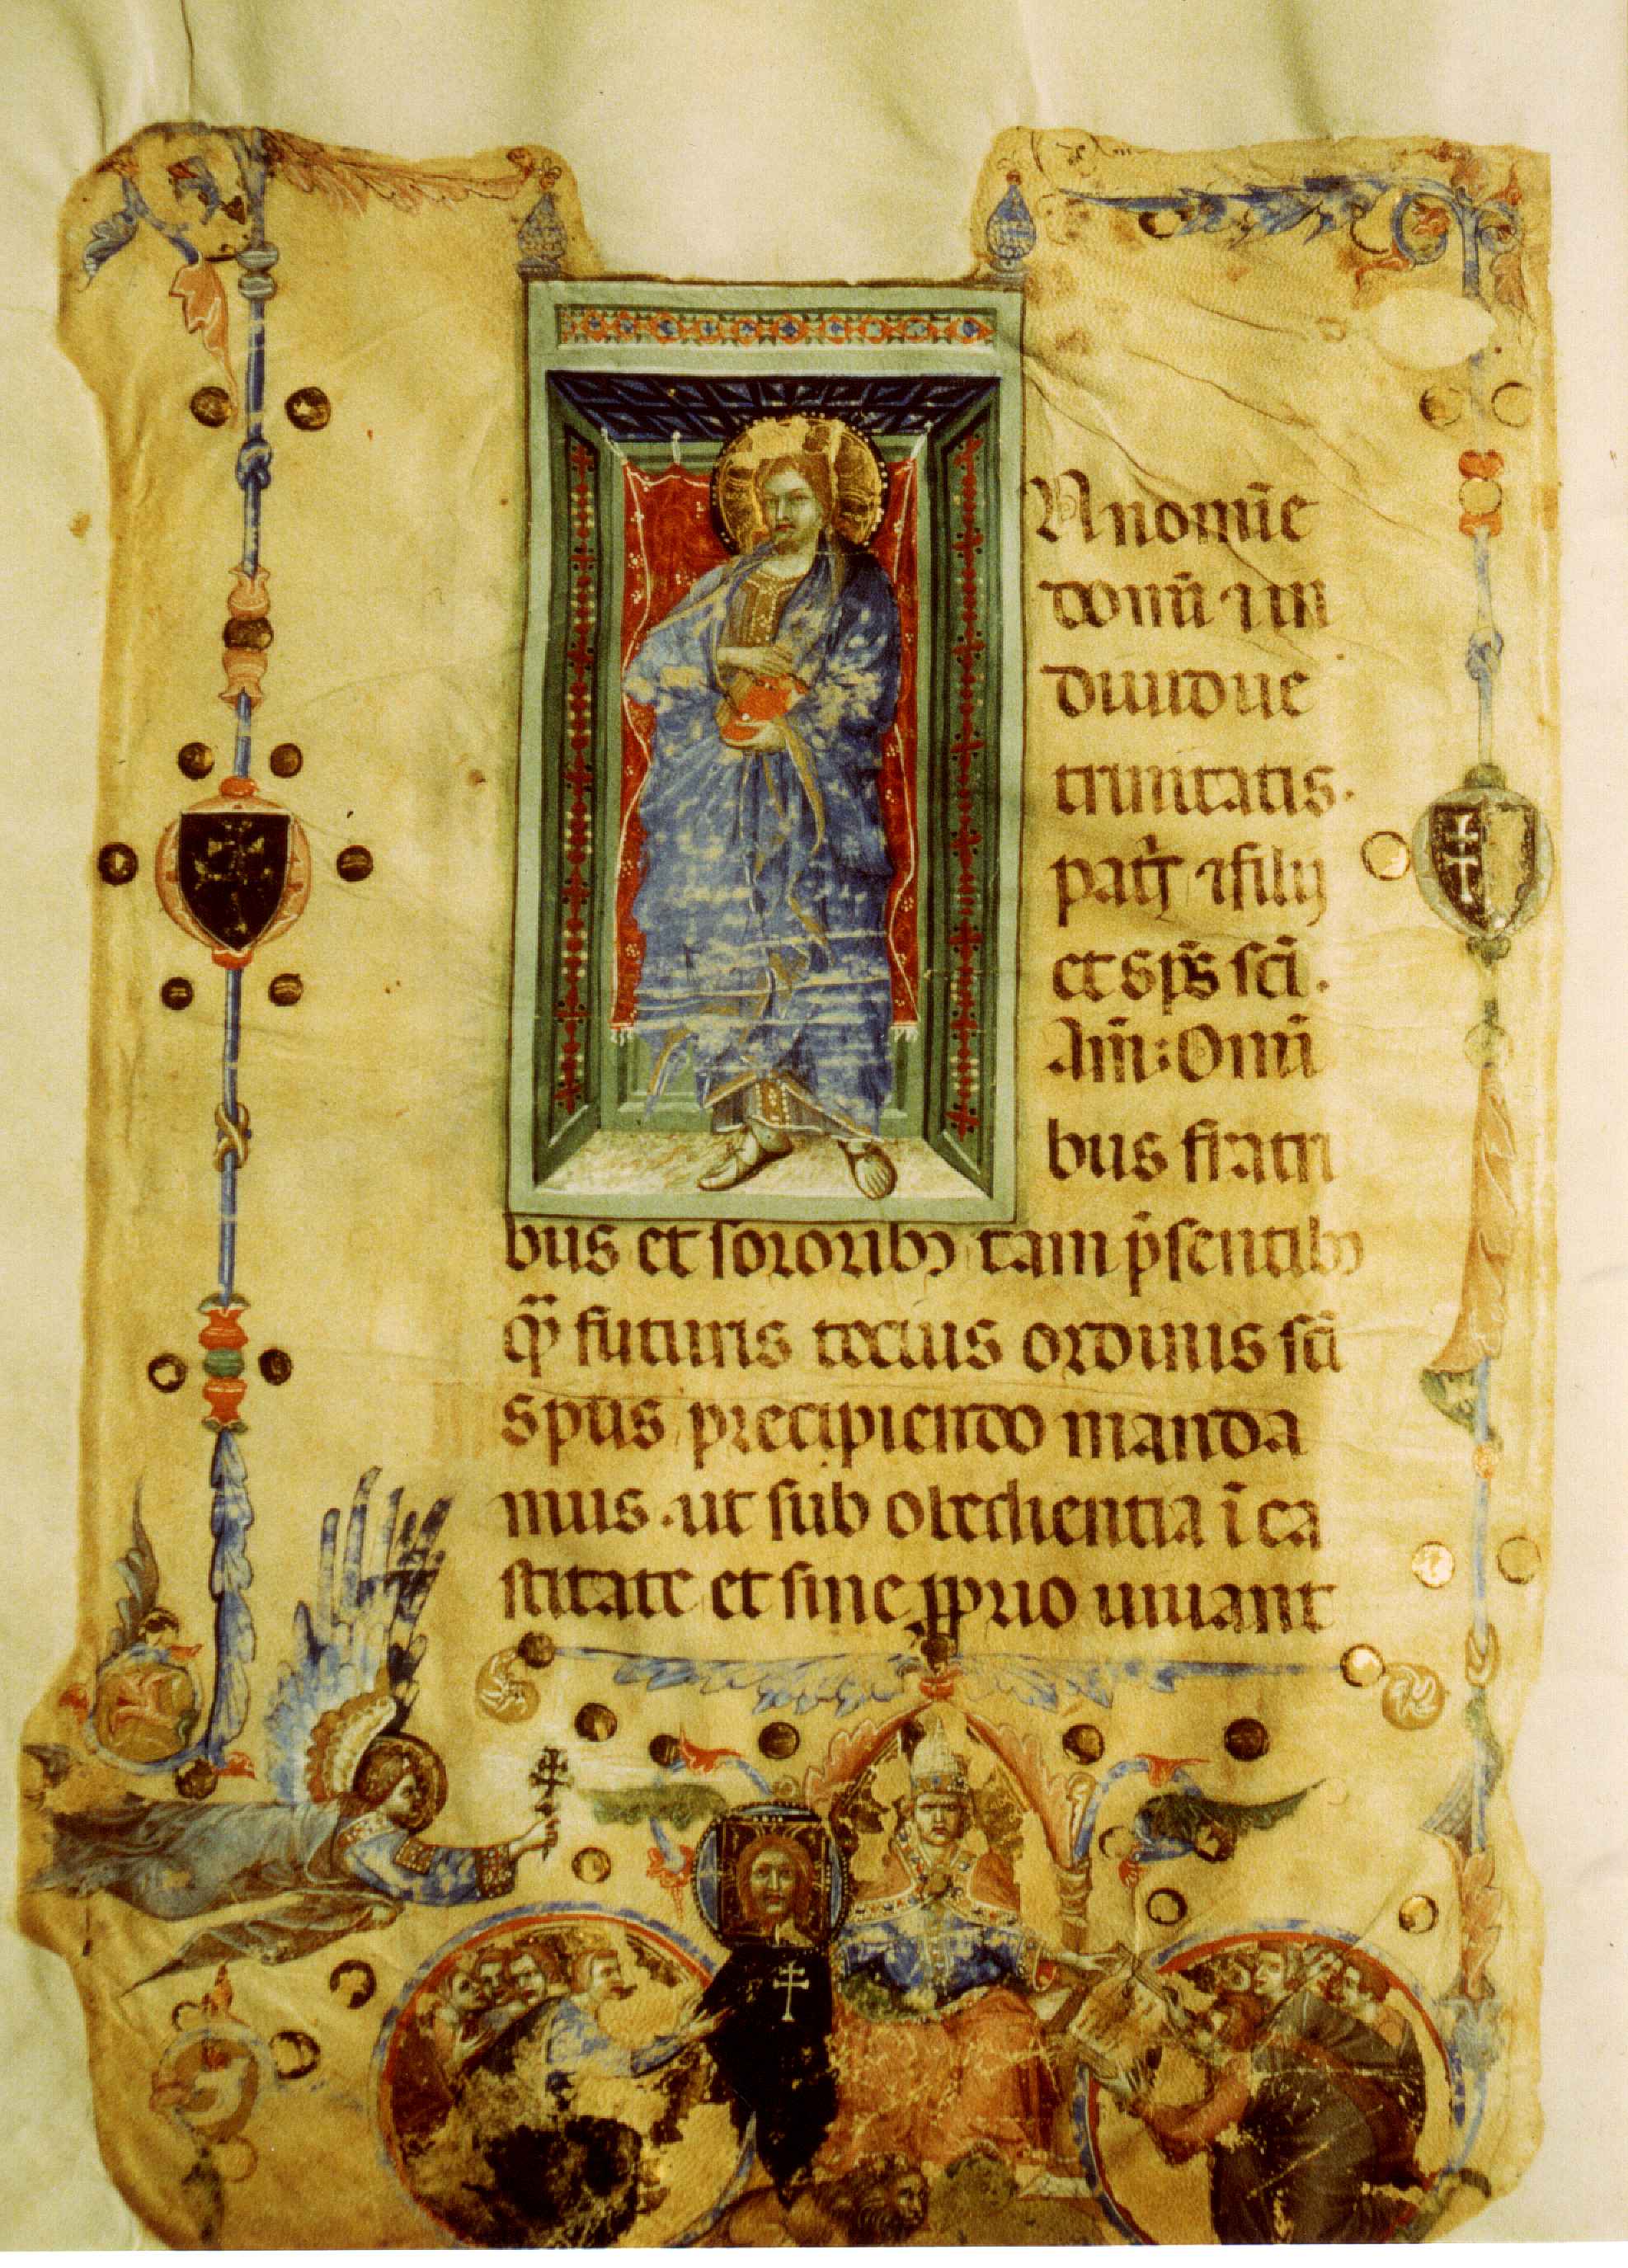 N nomīe
domī ⁊ in
diuidue
trinitatis.
pat̄s ⁊ filij
et sp̄s sc̄i.
Am̄: Omī
bus fratri
bus et sororibꝫ tam p̄sentibꝫ
qͫ futuris totius ordinis sc̄i
spūs precipiendo manda
mus. ut sub obedientia ī ca
stitate et sine ꝓprio uiuant